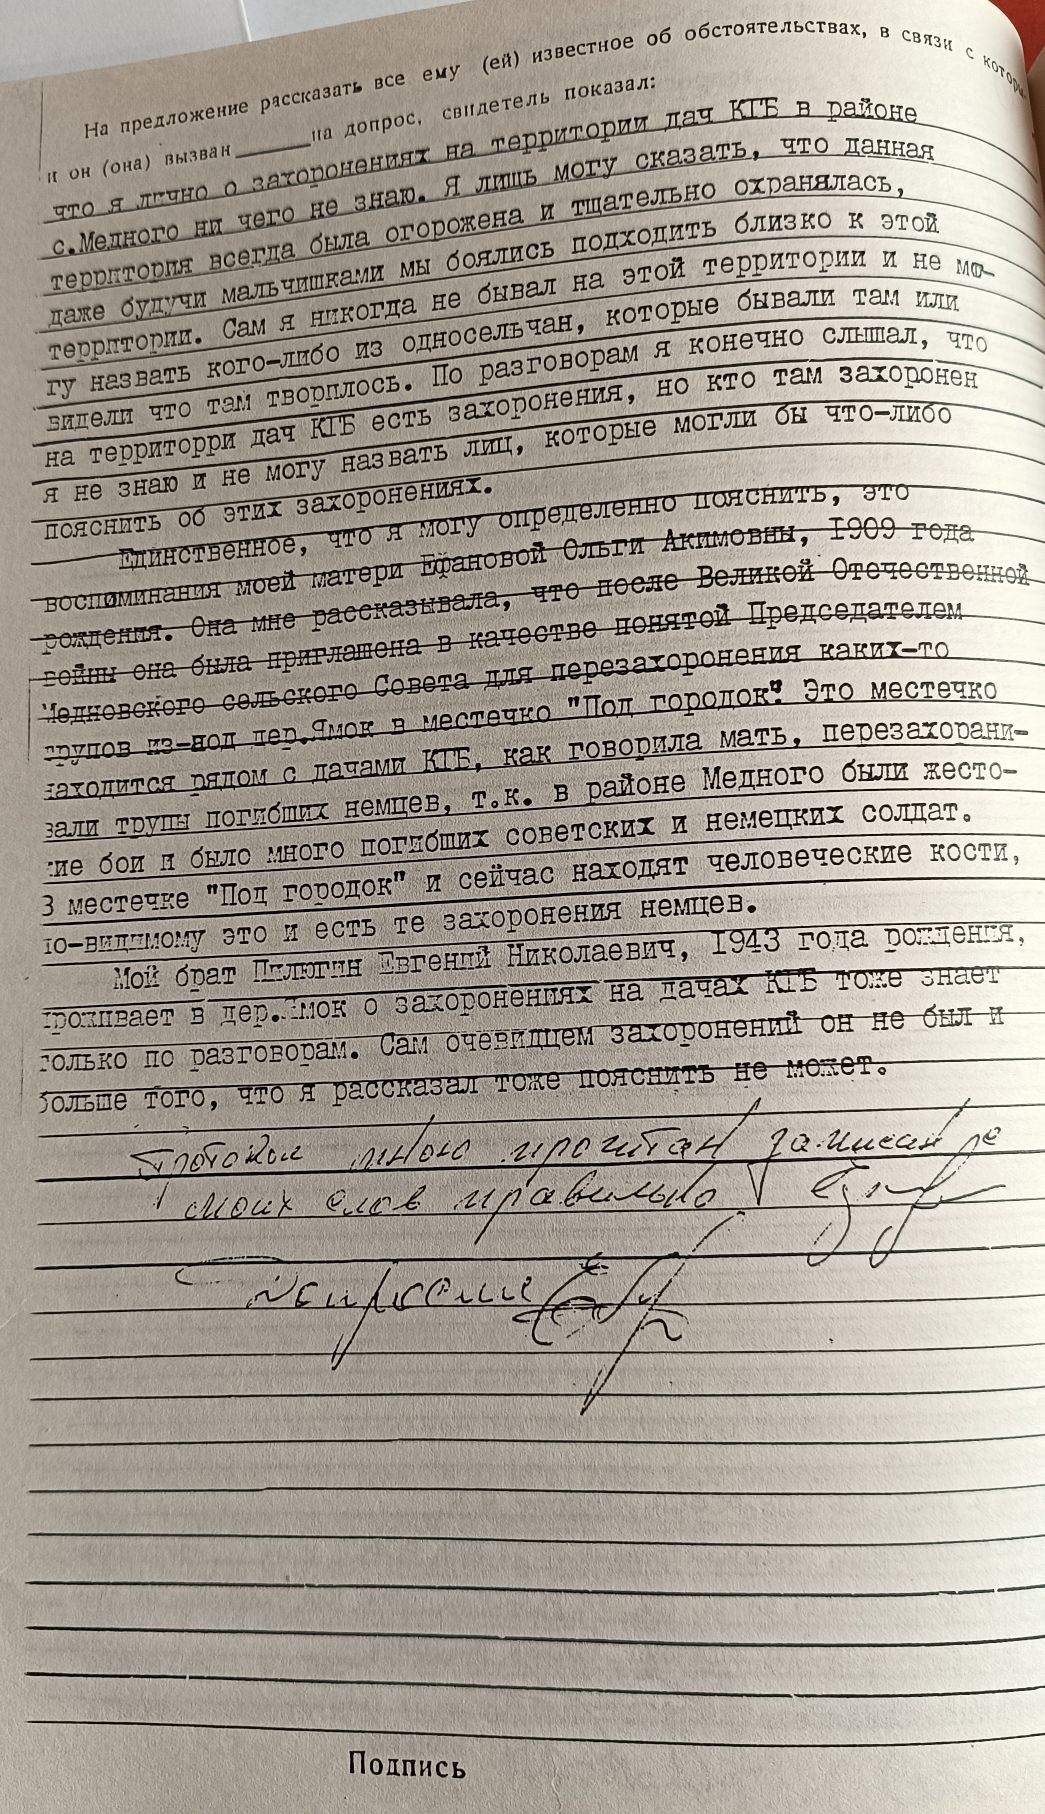 На предложение рассказать все ему (ей) известное об обстоятельствах, в связи с котор
и он (она) вызван ______ на допрос, свидетель показал:
что я лично о захоронениях на территории дач КГБ в районе
с.Медного ни чего не знаю. Я лишь могу сказать, что данная
территория всегда была огорожена и тщательно охранялась,
даже будучи мальчишками мы боялись подходить близко к этой
территории. Сам я никогда не бывал на этой территории и не мо-
гу назвать кого-либо из односельчан, которые бывали там или
видели что там творилось. По разговорам я конечно слышал, что
на территорри дач КГБ есть захоронения, но кто там захоронен
я не знаю и не могу назвать лиц, которые могли бы что-либо
пояснить об этих захоронениях.
Единственное, что я могу определенно пояснить, это
воспоминания моей матери Ефановой Ольги Акимовны, 1909 года
рождения. Она мне рассказывала, что после Великой Отечественной
войны она была приглашена в качестве понятой Председателем
Медновского сельского Совета для перезахоронения каких-то
трупов из-под дер.Ямок в местечко "Под городок". Это местечко
находится рядом с дачами КГБ, как говорила мать, перезахорани-
вали трупы погибших немцев, т.к. в районе Медного были жесто-
кие бои и было много погибших советских и немецких солдат.
В местечке "Под городок" и сейчас находят человеческие кости,
по-видимому это и есть те захоронения немцев.
Мой брат Пилюгин Евгений Николаевич, 1943 года рождения,
проживает в дер.Ямок о захоронениях на дачах КГБ тоже знает
только по разговорам. Сам очевидцем захоронений он не был и
больше того, что я рассказал тоже пояснить не может.
Протокол мною прочитан записан с
моих слов правильно
Подпись